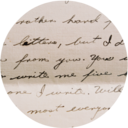 another hard
letters, but I d
from you. You
write me five
one I write. Will
most every